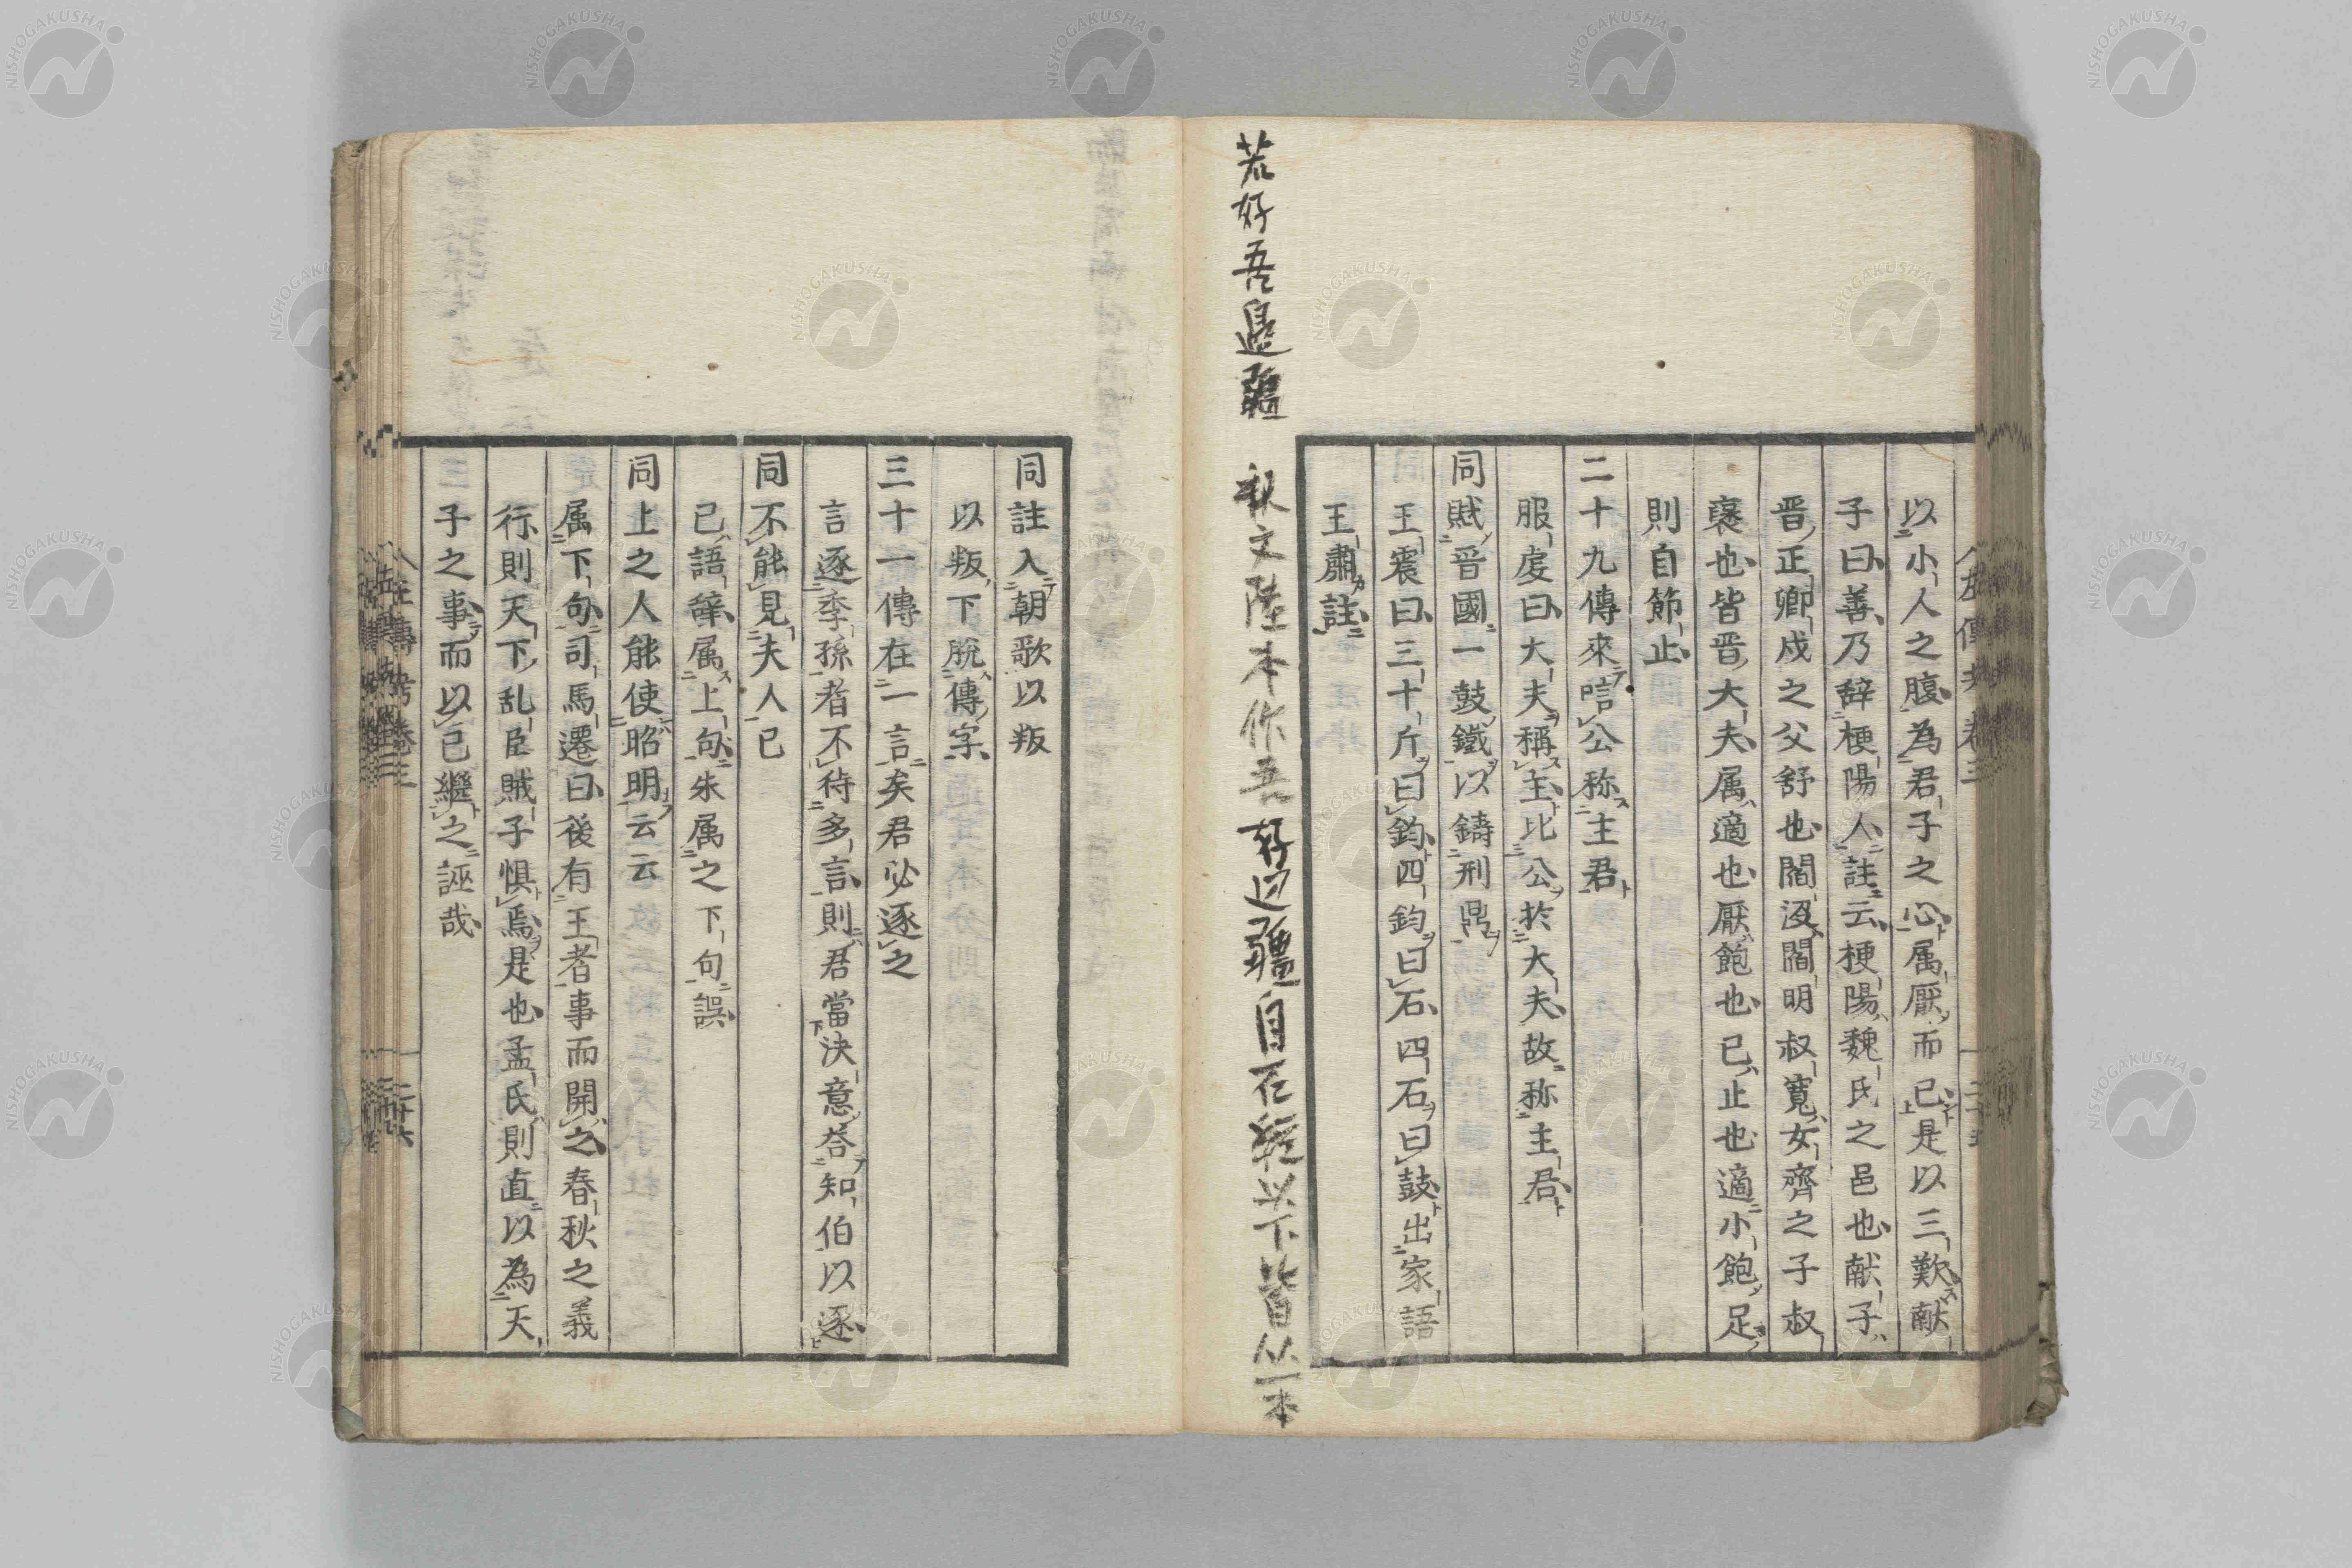 以小人之腹為君子之心属厭而已是以三歎献
子曰善乃辞梗陽人註云梗陽魏氏之邑也献子
晋正卿戍之父舒也閻没閻明叔寬女齊之子叔
襃也皆晋大夫属適也厭飽也已止也適小飽足
則自節止
二十九傳來唁公称主君
服虔曰大夫稱主比公於大夫故称主君
同賦晋國一鼓鐵以鑄刑鼎
王震曰三十斤曰鈞四鈞曰石四石曰鼓出家語
王肅註
荒好吾邊疆
釈文陸本作吾好邊疆自石経以下皆从一本
同註入朝歌以叛
以叛下脫傳字
三十一傳在一言矣君必逐之
言逐季孫者不待多言則君當决意荅知伯以逐
同不能見夫人已
已語辞属上句朱属之下句誤
同上之人能使昭明云云
属下句司馬遷曰後有王者事而開之春秋之義
行則天下乱臣賊子惧焉是也孟氏則直以為天
子之事而以已繼之誣哉
左傳考卷三
二十六
NISHOGAKUSHA